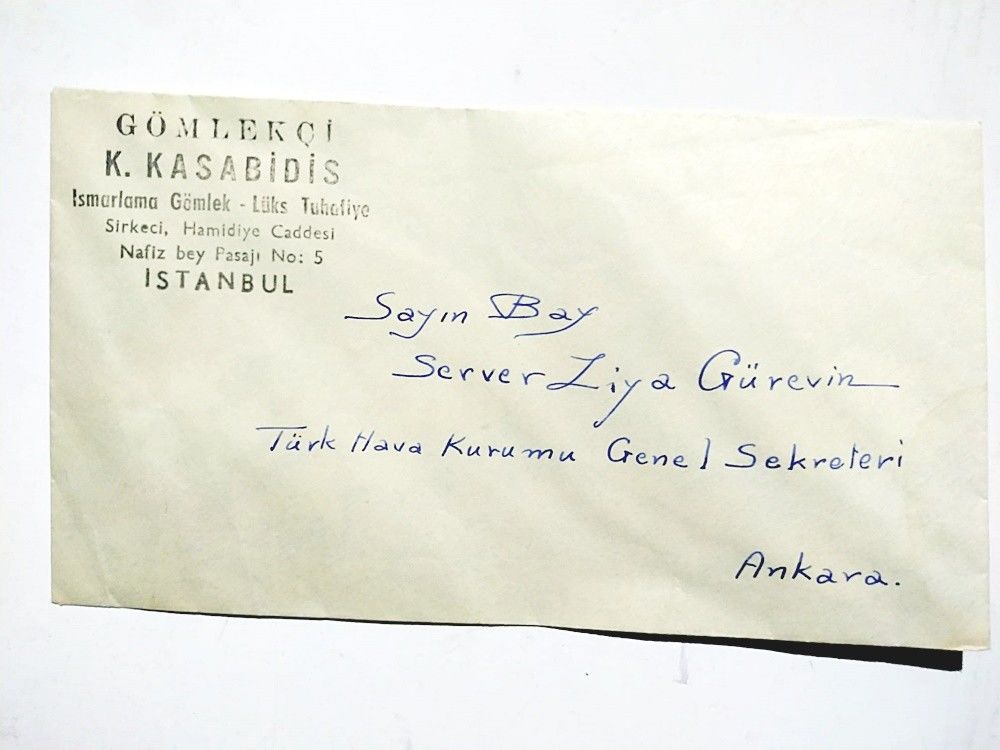 GÖMLEKÇİ
K. KASABİDİS
Ismarlama Gömlek - Lüks Tuhafiye
Sirkeci, Hamidiye Caddesi
Nafiz bey Pasajı No: 5
İSTANBUL
Sayın Bay
Server Ziya Gürevin
Türk Hava Kurumu Genel Sekreteri
Ankara.